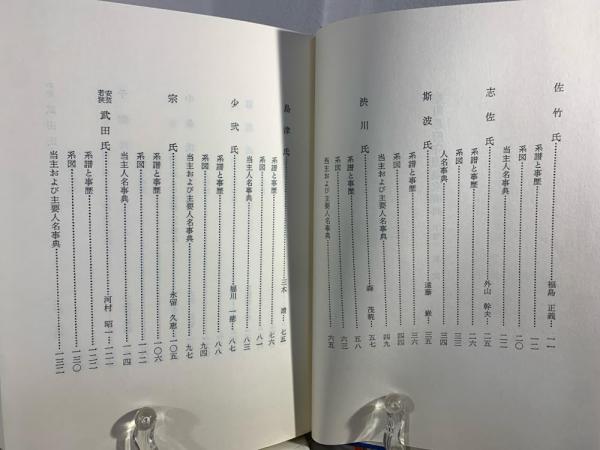 佐竹氏……福島 正義…一一
系譜と事歴……一二
系図……二〇
当主人名事典……二二
志佐氏……外山 幹夫…二五
系譜と事歴……二六
系図……三三
人名事典……三四
斯波氏……遠藤 巌…三五
系譜と事歴……三六
系図……四四
当主および主要人名事典……四九
渋川氏……森 茂暁…五七
系譜と事歴……五八
系図……六三
当主および主要人名事典……六五
島津氏……三木 靖…七五
系譜と事歴……七六
系図……八一
当主人名事典……八三
少弐氏……堀川 一徳…八七
系譜と事歴……八八
系図……九四
当主および主要人名事典……九七
宗氏……永留 久恵…一〇五
系譜と事歴……一〇六
系図……一一二
当主人名事典……一一四
安芸若狭 武田氏……河村 昭一…一二一
系譜と事歴……一二二
系図……一三〇
当主および主要人名事典……一三二